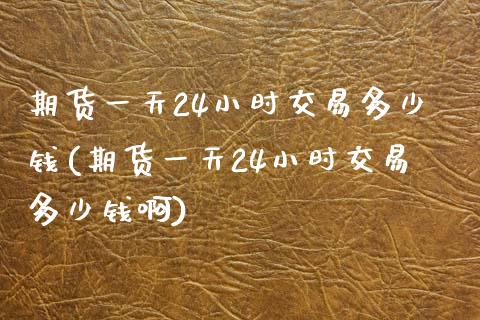 期货一天24小时交易多少
钱(期货一天24小时交易
多少钱啊)